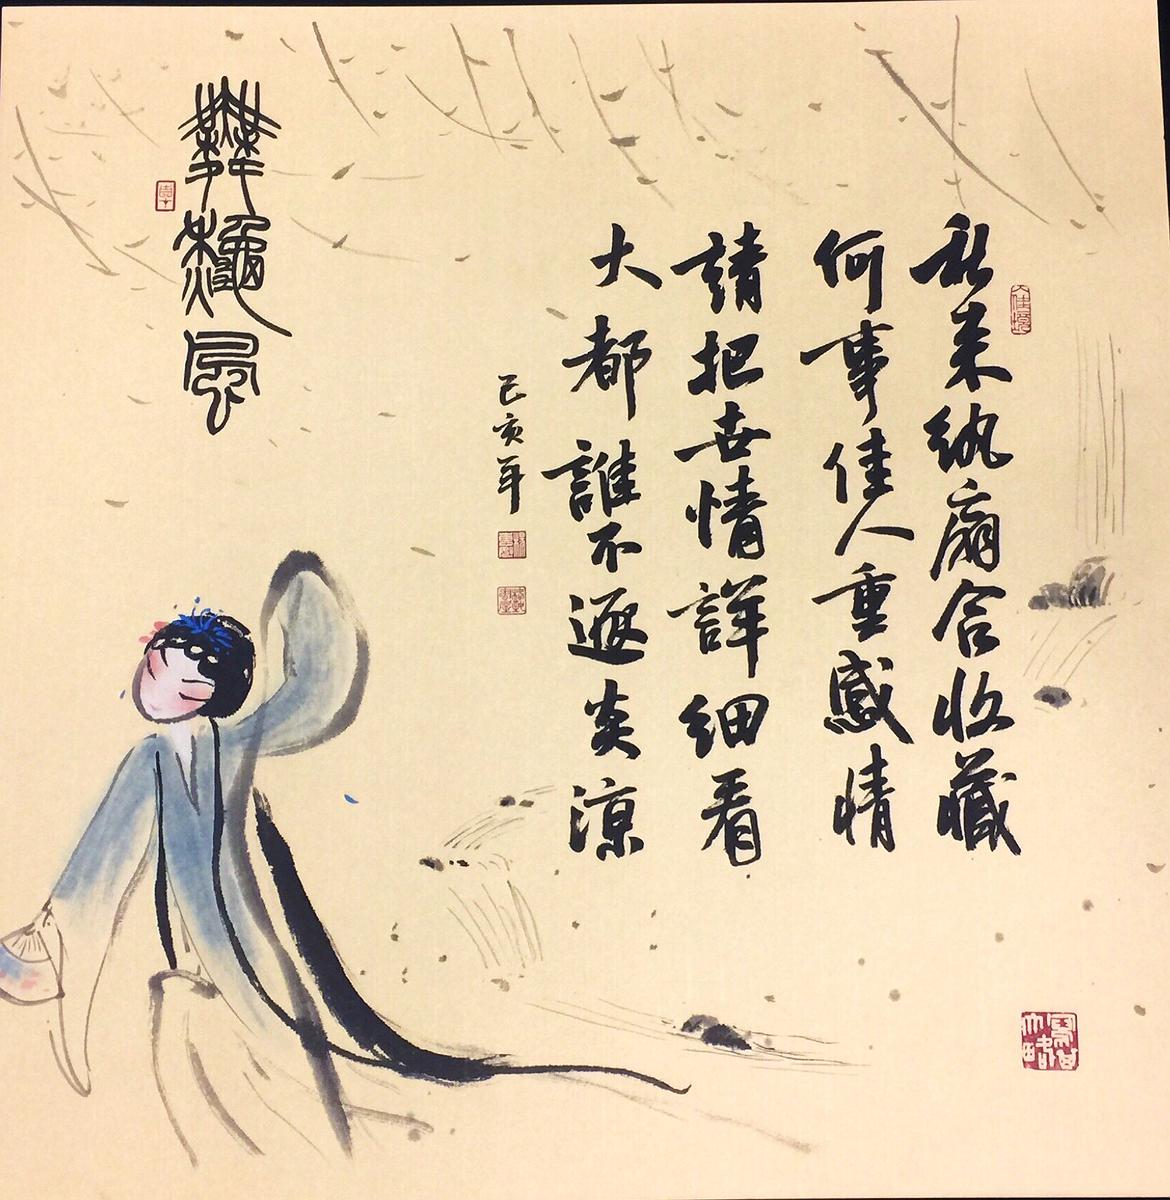 秋来紈扇合收藏
何事佳人重感情
請把世情詳細看
大都誰不逐炎涼
己亥年
舞秋風
入佳境